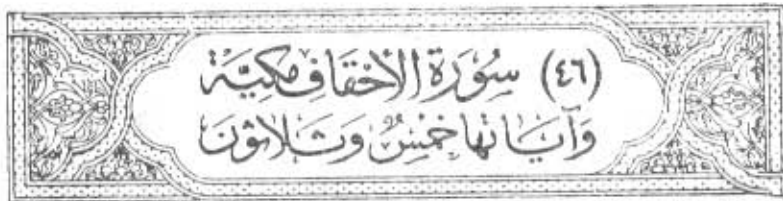 (٤٦) سُورَة الأَحْقَافِ مَكِيَّة
وَآيَاتُهَا خَمْسٌ وَثَلَاثُونَ